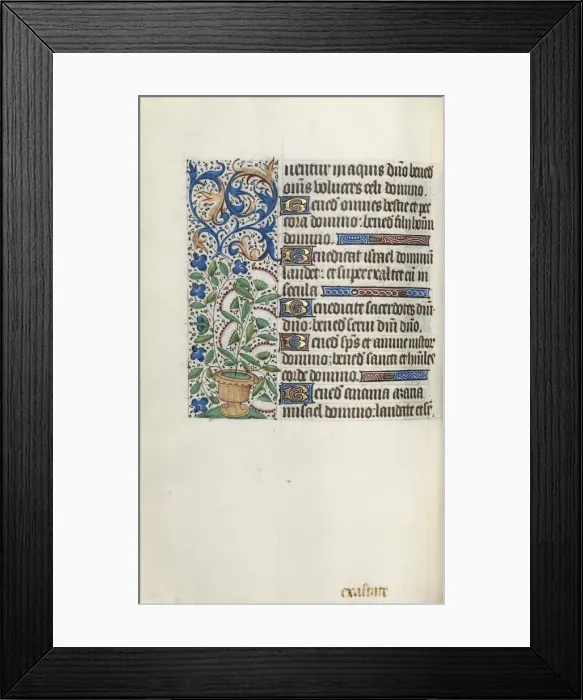 uentur in aquis dño bened
om̃s volucres celi domino.
Bened omnes bestie et pec
cora domino: bened filij hoım
domino.
Benedicat israel dominũ
laudet: et superexaltet eũ in
secula
Benedicite sacerdotes dñi
dño: bened serui dñi dño.
Bened sp̃s et anime iustor
domino: bened sancti et hũiles
corde domino.
Bened anania azaria
misael domino: laudate et sr̃
exaltate